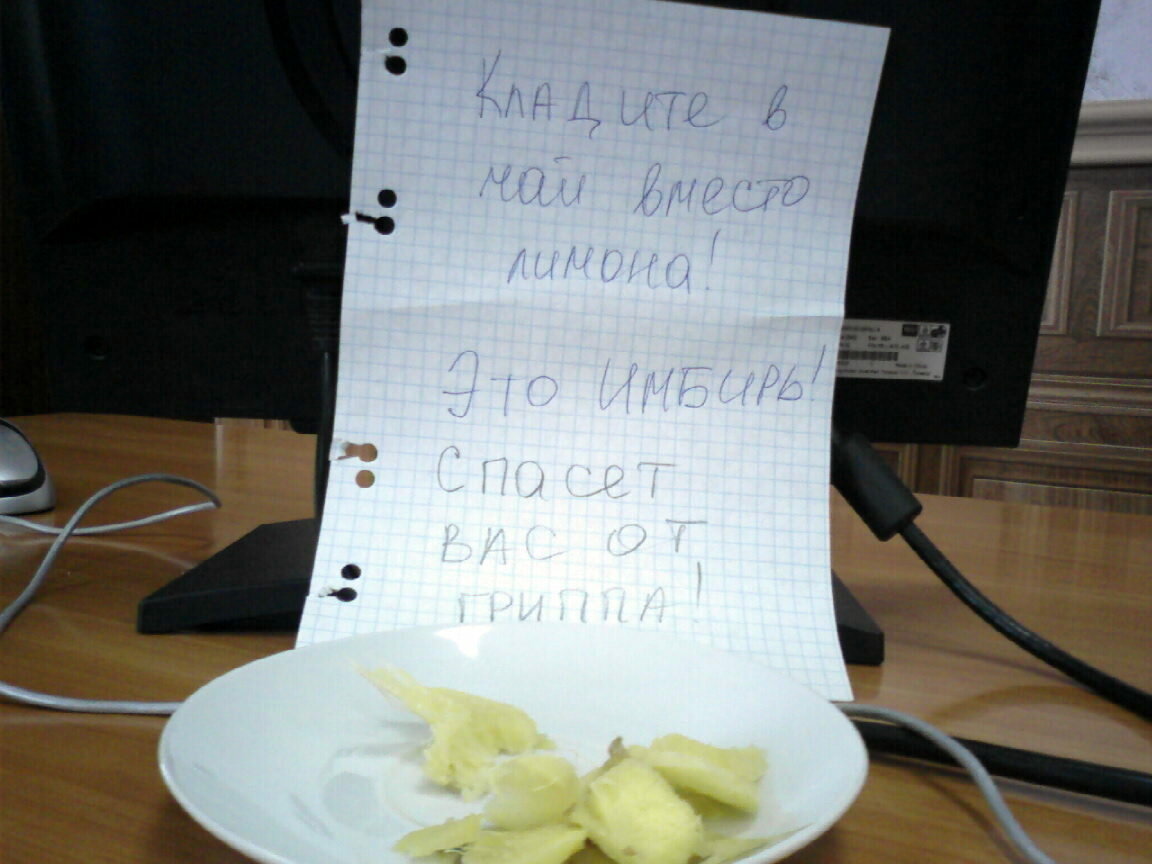 Кладите в
чай вместо
лимона!
Это ИМБИРЬ!
Спасет
ВАС ОТ
ГРИППА!